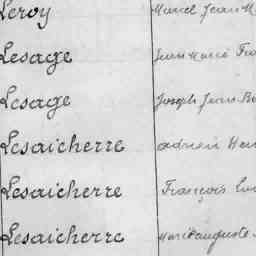 Leroy Marcel Jean M
Lesage Jean Marie Fra
Lesage Joseph Jean Ba
Lesaicherre Adrien Hen
Lesaicherre François
Lesaicherre Marie auguste